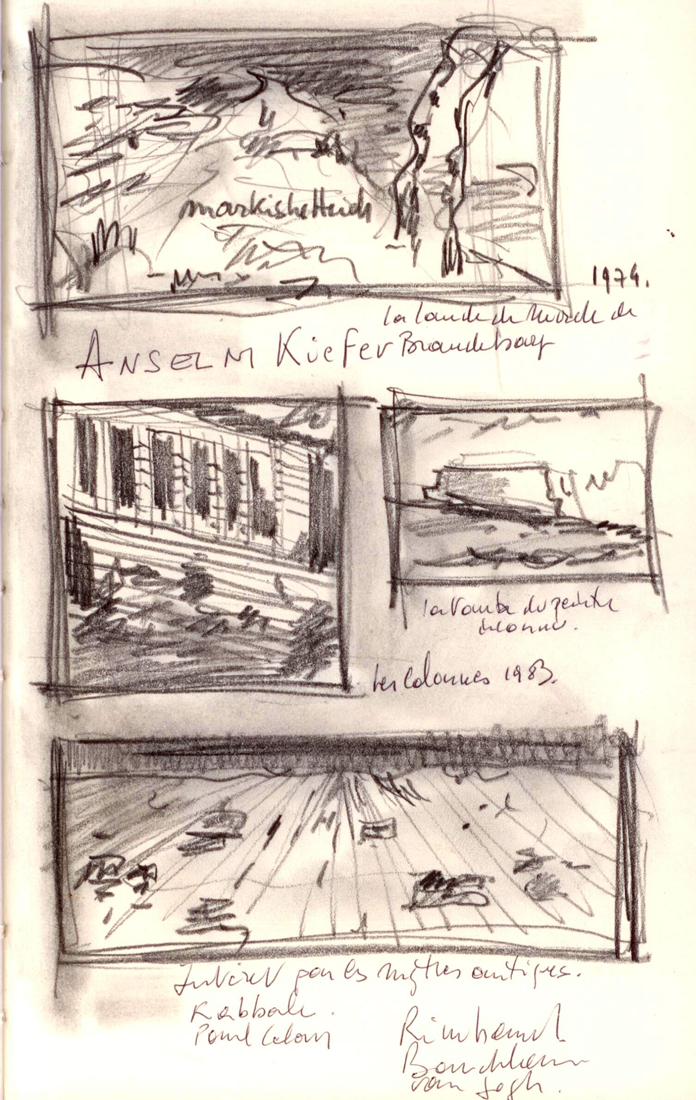 markisheHeide
1974.
la lande de la Marche de
ANSELM Kiefer Brandebourg
la Tombe du peintre
inconnu.
les Colonnes 1983.
Intérêt par les mythes antiques.
Kabbale.
Paul Celan
Rimbaud
Baudelaire
van gogh.